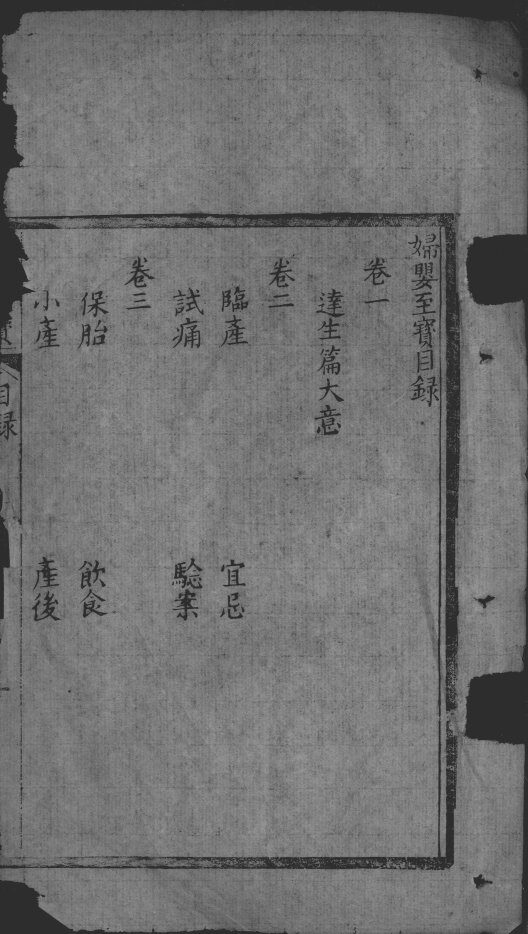 婦嬰至寶目録
卷一
達生篇大意
卷二
臨產 宜忌
試痛 驗案
卷三
保胎 飲食
小產 產後
目録